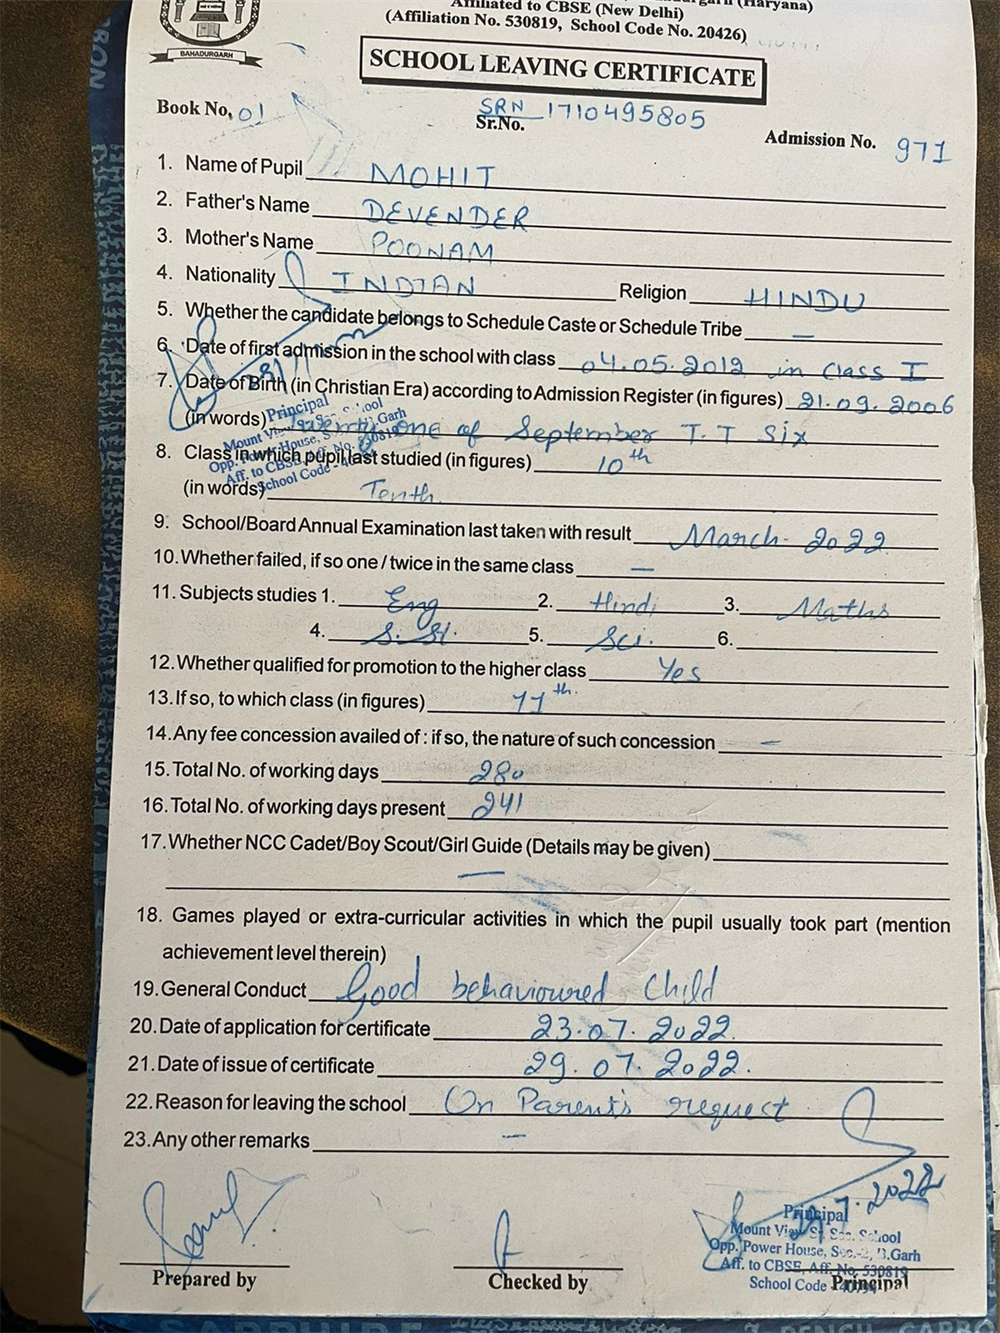 Affiliated to CBSE (New Delhi)
(Affiliation No. 530819, School Code No. 20426)
BAHADURGARH
SCHOOL LEAVING CERTIFICATE
Book No. 01
SRN 1710495805
Sr.No.
Admission No. 971
1. Name of Pupil MOHIT
2. Father's Name DEVENDER
3. Mother's Name POONAM
4. Nationality INDIAN Religion HINDU
5. Whether the candidate belongs to Schedule Caste or Schedule Tribe —
6. Date of first admission in the school with class 04.05.2012 in Class I
7. Date of Birth (in Christian Era) according to Admission Register (in figures) 21.09.2006
(in words) Twenty One of September T.T Six
Principal
Mount View Sr. Sec. School
Opp. Power House, B.Garh
Aff. to CBSE, Aff. No. 530819
School Code
8. Class in which pupil last studied (in figures) 10th
(in words) Tenth
9. School/Board Annual Examination last taken with result March-2022
10. Whether failed, if so one / twice in the same class —
11. Subjects studies 1. Eng 2. Hindi 3. Maths
4. S.St. 5. Sci. 6.
12. Whether qualified for promotion to the higher class Yes
13. If so, to which class (in figures) 11th.
14. Any fee concession availed of : if so, the nature of such concession —
15. Total No. of working days 280
16. Total No. of working days present 241
17. Whether NCC Cadet/Boy Scout/Girl Guide (Details may be given)
—
18. Games played or extra-curricular activities in which the pupil usually took part (mention
achievement level therein)
19. General Conduct Good behavioured Child
20. Date of application for certificate 23.07.2022.
21. Date of issue of certificate 29.07.2022.
22. Reason for leaving the school On Parent's request
23. Any other remarks —
Principal
Mount View Sr. Sec. School
Opp. Power House, Sec.-2, B.Garh
Aff. to CBSE, Aff. No. 530819
School Code
Prepared by Checked by Principal